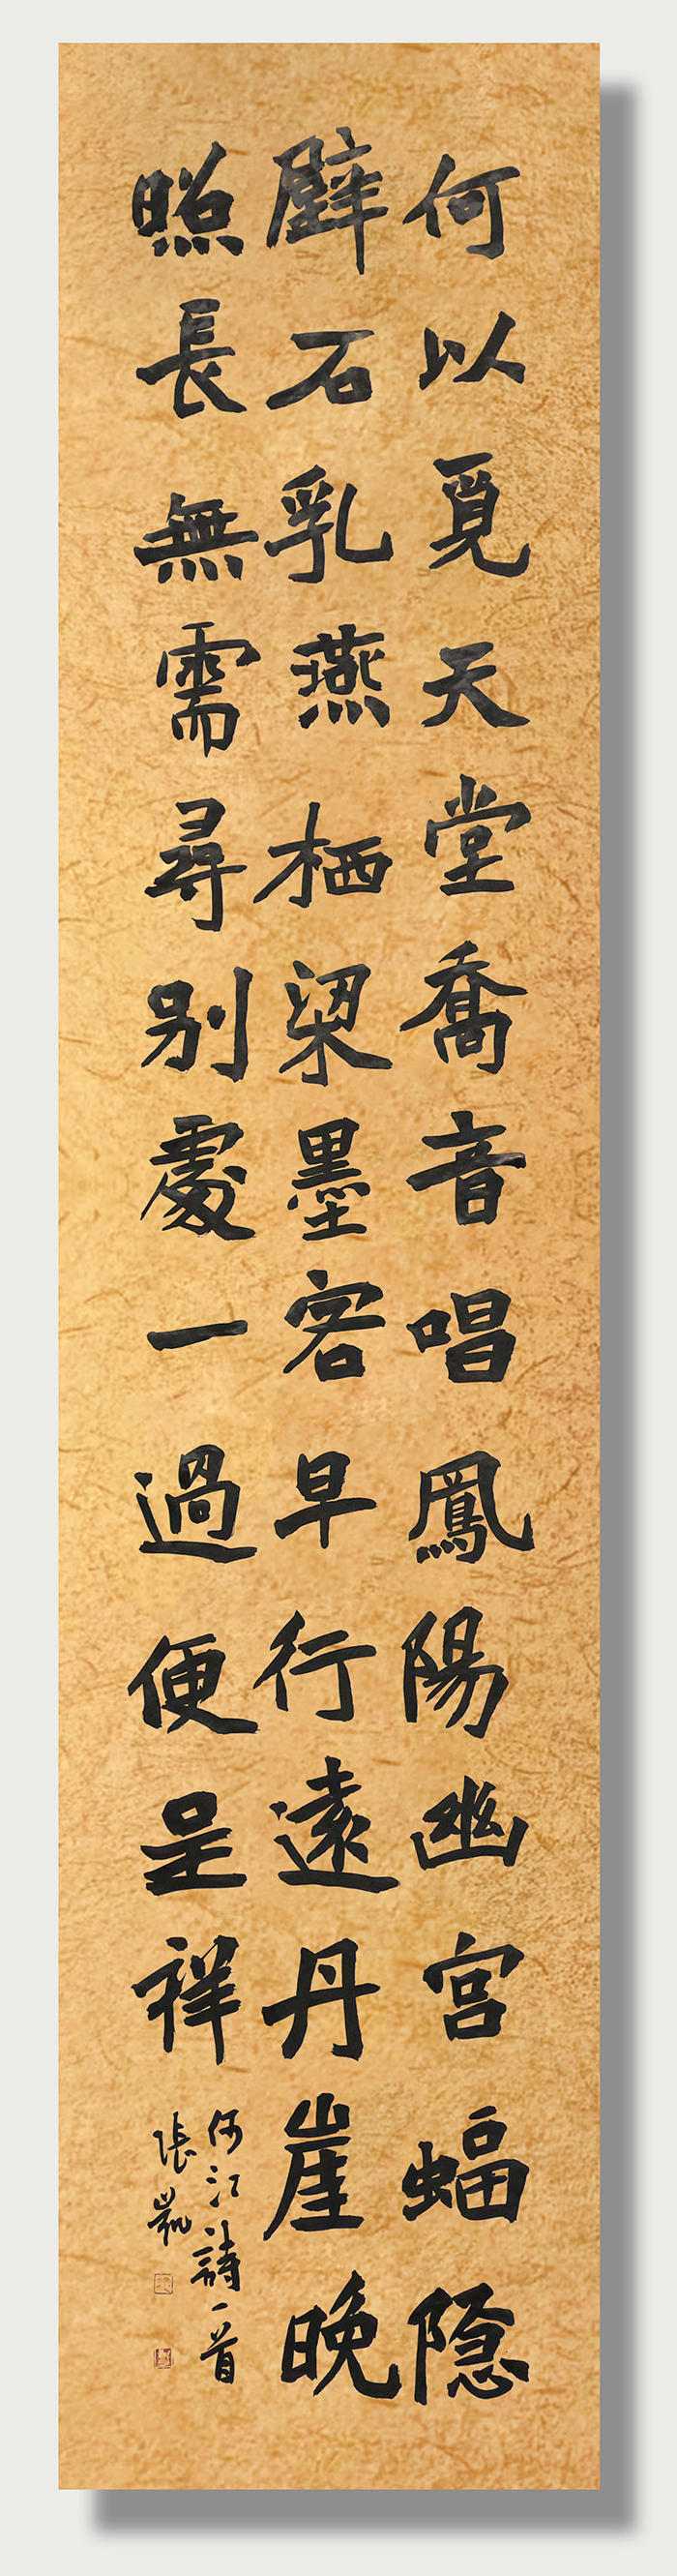 何以覓天堂喬音唱鳳陽幽宫蝠隐
壁石乳燕栖梁墨客早行遠丹崖晚
照長無需尋别處一過便呈祥
何江詩一首
張凱